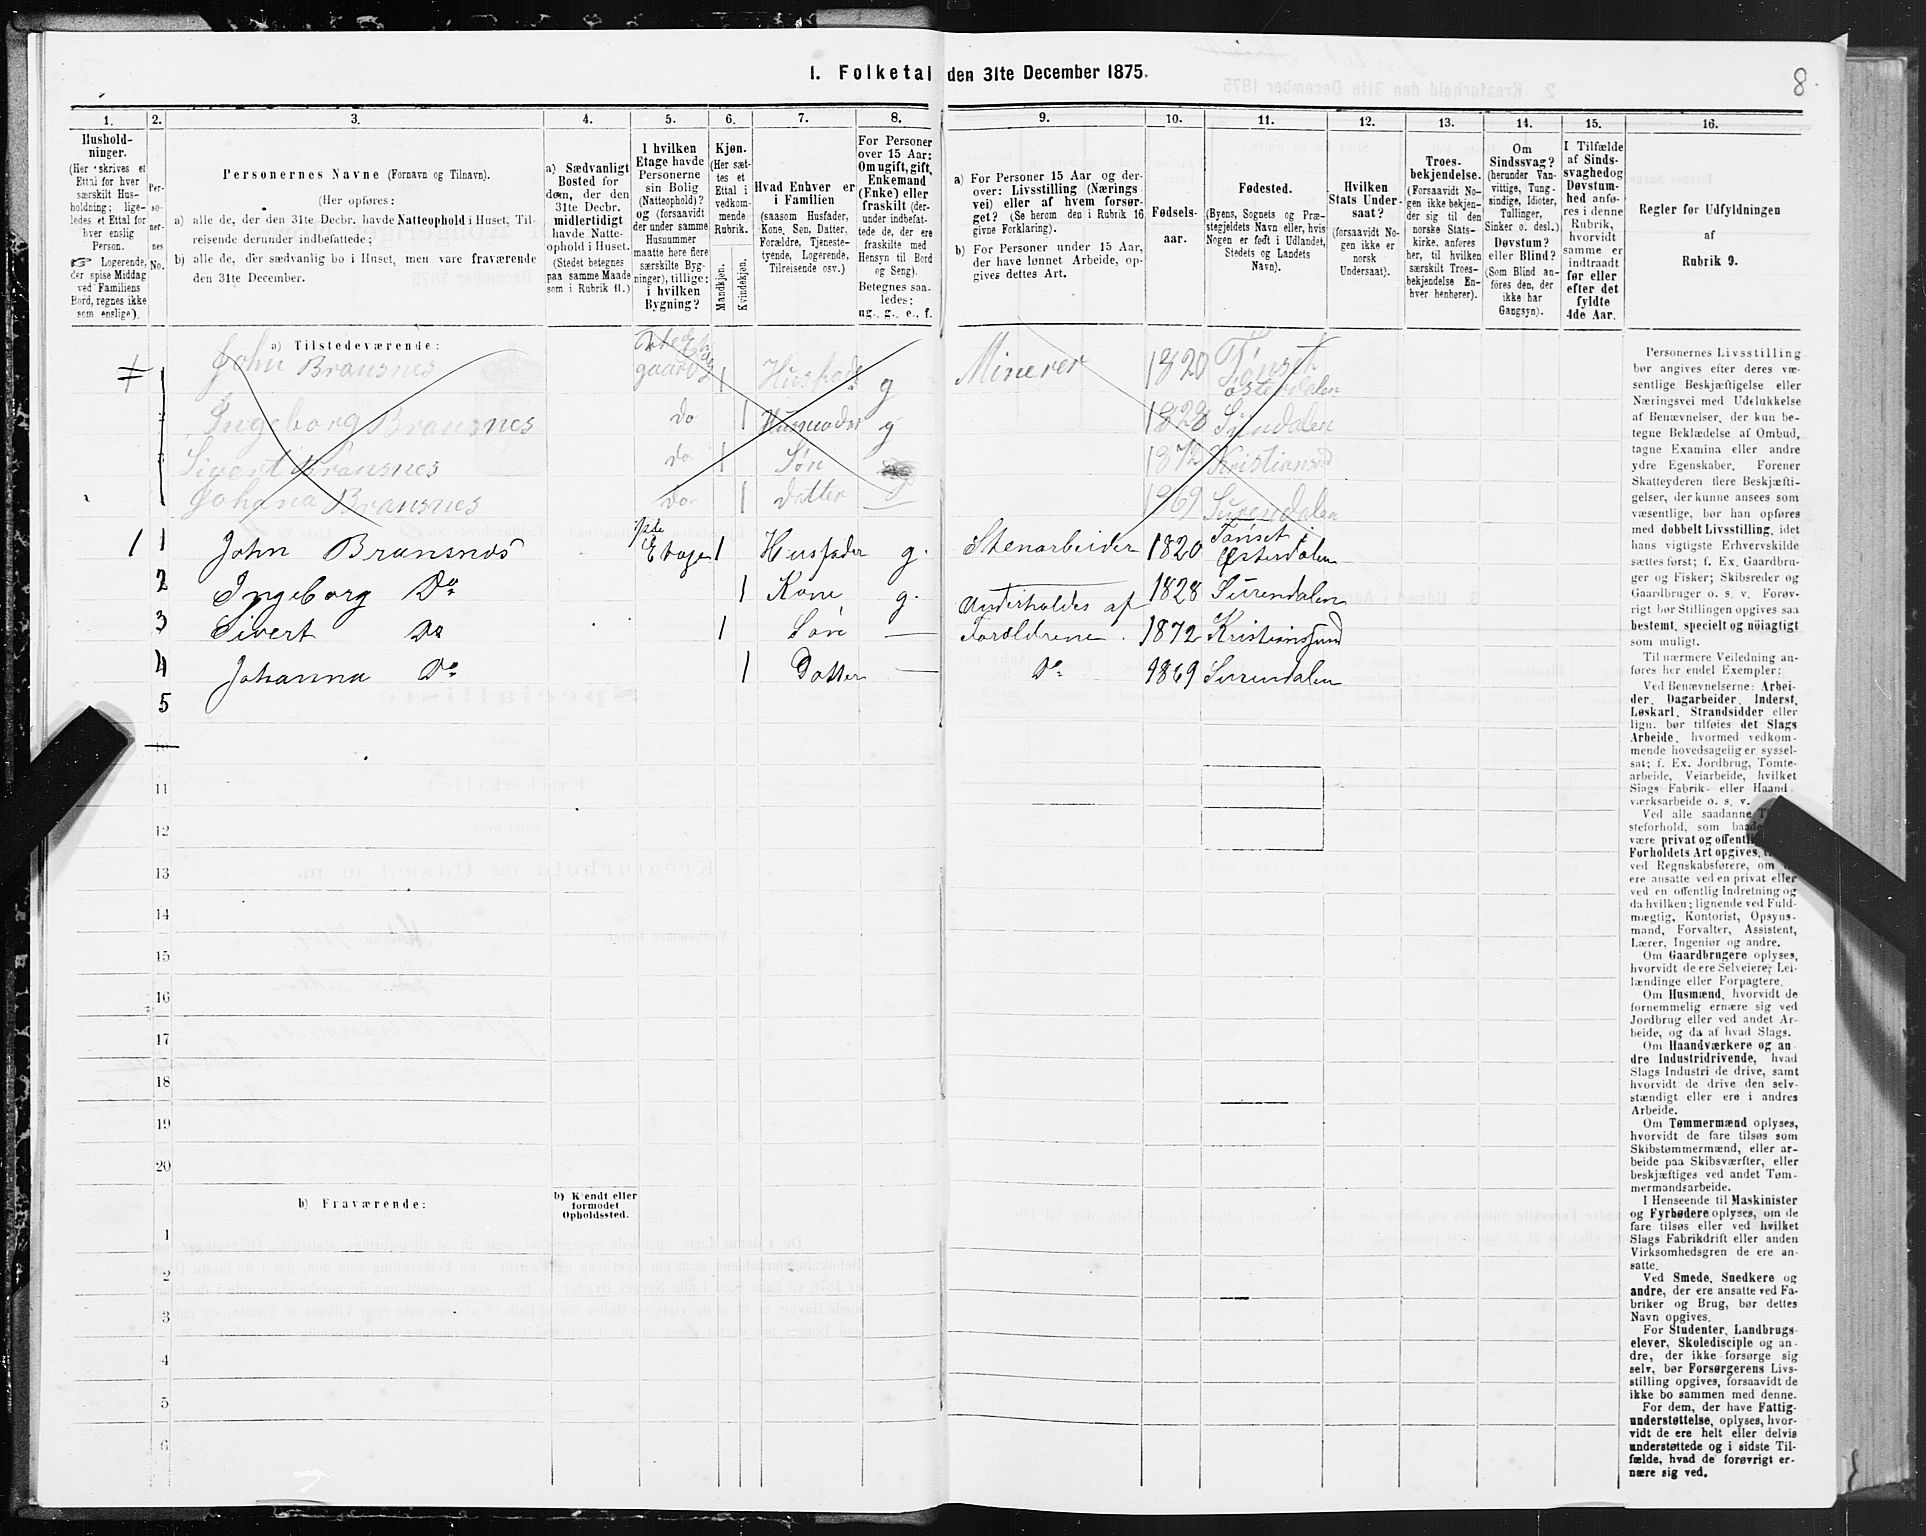 1. Folketal den 31te December 1875.
8.
1.
2.
3.
4.
5.
6.
7.
8.
9.
10.
11.
12.
13.
14.
15.
16.
Hushold-
ninger.
(Her skrives et
Ettal for hver
særskilt Hus-
holdning; lige-
ledes et Ettal for
hver enslig
Person.
☞ Logerende,
der spise Middag
ved Familiens
Bord, regnes ikke
som enslige).
Per-
so-
ner-
nes
No.
Personernes Navne (Fornavn og Tilnavn).
(Her opføres:
a) alle de, der den 31te Decbr. havde Natteophold i Huset, Til-
reisende derunder indbefattede;
b) alle de, der sædvanlig bo i Huset, men vare fraværende
den 31te December.
a) Sædvanligt
Bosted for
dem, der den
31te Decbr.
midlertidigt
havde Natte-
ophold i Huset.
(Stedet betegnes
paa samme Maade
som i Rubrik 11.)
I hvilken
Etage havde
Personerne
sin Bolig
(Natteophold)?
og (forsaavidt
der under samme
Husnummer
maatte høre flere
særskilte Byg-
ninger), tillige:
i hvilken
Bygning?
Kjøn.
(Her sæt-
tes et
Ettal i
vedkom-
mende
Rubrik.
Mandkjøn.
Kvindekjøn.
Hvad Enhver er
i Familien
(saasom Husfader,
Kone, Søn, Datter,
Forældre, Tjeneste-
tyende, Logerende,
Tilreisende osv.)
For Personer
over 15 Aar:
Om ugift, gift,
Enkemand
(Enke) eller
fraskilt (der-
under indbefat-
tede de, der ere
fraskilte med
Hensyn til Bord
og Seng).
Betegnes saa-
ledes:
ug., g., e., f.
a) For Personer 15 Aar og der-
over: Livsstilling (Nærings-
vei) eller af hvem forsør-
get? (Se herom den i Rubrik 16
givne Forklaring).
b) For Personer under 15 Aar,
der have lønnet Arbeide, op-
gives dettes Art.
Fødsels-
aar.
Fødested.
(Byens, Sognets og Præ-
stegjeldets Navn eller, hvis
Nogen er født i Udlandet,
Stedets og Landets
Navn).
Hvilken
Stats Under-
saat?
(forsaavidt No-
gen ikke er
norsk
Undersaat).
Troes-
bekjendelse.
(Forsaavidt No-
gen ikke bekjen-
der sig til den
norske Stats-
kirke, anføres
her, til hvilken
særskilt Troes-
bekjendelse En-
hver henhører).
Om
Sindssvag?
(herunder Van-
vittige, Tung-
sindige, Idioter,
Tullinger,
Sinker o. desl.)
Døvstum?
eller Blind?
(Som Blind an-
føres den, der
ikke har
Gangsyn).
I Tilfælde
af Sinds-
svaghed og
Døvstum-
hed anfø-
res i denne
Rubrik,
hvorvidt
samme er
indtraadt
før eller
efter det
fyldte
4de Aar.
Regler for Udfyldningen
af
Rubrik 9.
a) Tilstedeværende:
1 John Bransnes gaard 1 Husfader g Minerer 1820 Tönset Østerdalen
2 Ingeborg Bransnes do 1 Husmoder g 1828 Surendalen
3 Sivert Bransnes do 1 Søn 1872 Kristiansund
Johana Bransnes do 1 datter 1869 Surendalen
1 1 John Bransnes Etage 1 Husfader g. Stenarbeider 1820 Tønset Østerdalen
2 Ingeborg Do 1 Kone g. 1828 Surendalen
3 Sivert Do 1 Søn — Underholdes af Forældrene. 1872 Kristianssund
4 Johanna Do 1 Datter — Do 1869 Surendalen
5
10
11
12
13
14
15
16
17
18
19
20
b) Fraværende:
b) Kjendt eller
formodet
Opholdssted.
1
2
3
4
5
6
Personernes Livsstilling
bør angives efter deres væ-
sentlige Beskjæftigelse eller
Næringsvei med Udelukkelse
af Benævnelser, der kun be-
tegne Beklædelse af Ombud,
tagne Examina eller andre
ydre Egenskaber. Forener
Skatteyderen flere Beskjæfti-
gelser, der kunne ansees som
væsentlige, bør han opføres
med dobbelt Livsstilling, idet
hans vigtigste Erhvervskilde
sættes først; f. Ex. Gaardbru-
ger og Fisker; Skibsreder og
Gaardbruger o. s. v. Forøv-
rigt bør Stillingen opgives saa
bestemt, specielt og nöiagtigt
som muligt.
Til nærmere Veiledning an-
føres her endel Exempler:
Ved Benævnelserne: Arbei-
der, Dagarbeider, Inderst,
Løskarl, Strandsidder eller
lign. bør tilføies det Slags
Arbeide, hvormed vedkom-
mende hovedsagelig er syssel-
sat; f. Ex. Jordbrug, Tomte-
arbeide, Veiarbeide, hvilket
Slags Fabrik- eller Haand-
værksarbeide o. s. v.
Ved alle saadanne
steforhold, som
være privat og
Forholdets Art opgives,
ved Regnskabsførere, om
ere ansatte ved en privat eller
ved en offentlig Indretning og
da hvilken; lignende ved Fuld-
mægtig, Kontorist, Opsyns-
mand, Forvalter, Assistent,
Lærer, Ingeniør og andre.
Om Gaardbrugere oplyses,
hvorvidt de ere Selveiere, Lei-
lændinge eller Forpagtere.
Om Husmænd, hvorvidt de
fornemmelig ernære sig ved
Jordbrug eller ved andet Ar-
beide, og da af hvad Slags.
Om Haandværkere og an-
dre Industridrivende, hvad
Slags Industri de drive, samt
hvorvidt de drive den selv-
stændigt eller ere i andres
Arbeide.
Om Tømmermænd oplyses,
hvorvidt de fare tilsøs som
Skibstømmermænd, eller ar-
beide paa Skibsværfter, eller
beskjæftiges ved andet Tøm-
mermandsarbeide.
I Henseende til Maskinister
og Fyrbødere oplyses, om de
fare tilsøs eller ved hvilket
Slags Fabrikdrift eller anden
Virksomhedsgren de ere an-
satte.
Ved Smede, Snedkere og
andre, der ere ansatte ved Fa-
briker og Brug, bør dettes
Navn opgives.
For Studenter, Landbrugs-
elever, Skoledisciple og an-
dre, der ikke forsørge sig
selv, bør Forsørgerens Livs-
stilling opgives, forsaavidt de
ikke bo sammen med denne.
For dem, der have Fattig-
understøttelse, oplyses, hvor-
vidt de ere helt eller delvis
understøttede og i sidste Til-
fælde, hvad de forøvrigt er-
nære sig ved.